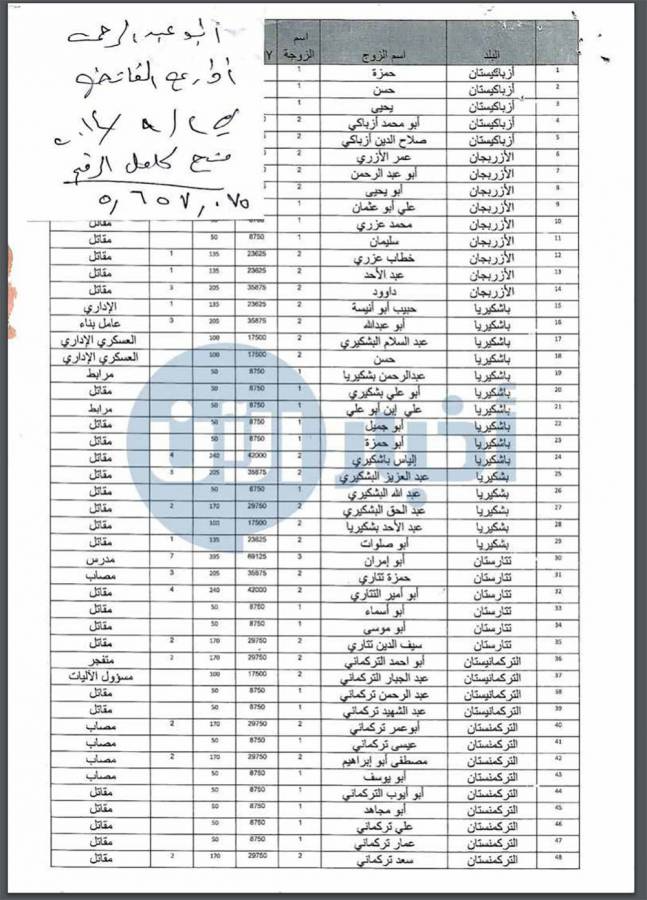 أبو عبد الرحمن
البلد اسم الزوج اسم الزوجة
1 أزباكيستان حمزة 1
2 أزباكيستان حسن 1
3 أزباكيستان يحيى 1
4 أزباكيستان أبو محمد أزباكي 2
5 أزباكستان صلاح الدين أزباكي 2
6 الأزربجان عمر الأزري 2
7 الأزربجان أبو عبد الرحمن 2
8 الأزربجان أبو يحيى 2
9 الأزربجان علي أبو عثمان 1
10 الأزربجان محمد عزري 1 50 8750 مقاتل
11 الأزربجان سليمان 1 8750 50 مقاتل
12 الأزربجان خطاب عزري 2 23625 135 1 مقاتل
13 الأزربجان عبد الأحد 2 23625 135 1 مقاتل
14 الأزربجان داوود 2 35875 205 3 مقاتل
15 باشكيريا حبيب أبو أنيسة 2 23625 135 1 الإداري
16 باشكيريا أبو عبدالله 2 35875 205 3 عامل بناء
17 باشكيريا عبد السلام البشكيري 2 17500 100 العسكري الإداري
18 باشكيريا حسن 2 17500 100 العسكري الإداري
19 باشكيريا عبدالرحمن بشكيريا 1 8750 50 مرابط
20 باشكيريا أبو علي بشكيري 1 8750 50 مقاتل
21 باشكيريا علي إبن أبو علي 1 8750 50 مرابط
22 باشكيريا أبو جميل 1 8750 50 مقاتل
23 باشكيريا أبو حمزة 1 8750 50 مقاتل
24 باشكيريا إلياس باشكيري 2 42000 240 4 مقاتل
25 بشكيريا عبد العزيز البشكيري 2 35875 205 3 مقاتل
26 بشكيريا عبد الله البشكيري 1 8750 50 مقاتل
27 بشكيريا عبد الحق البشكيري 2 29750 170 2 مقاتل
28 بشكيريا عبد الأحد بشكيريا 2 17500 100 مقاتل
29 بشكيريا أبو صلوات 2 23625 135 1 مقاتل
30 تتارستان أبو إمران 3 69125 395 7 مدرس
31 تتارستان حمزة تتاري 2 35875 205 3 مصاب
32 تتارستان أبو أمير التتاري 2 42000 240 4 مقاتل
33 تتارستان أبو أسماء 1 8750 50 مقاتل
34 تتارستان أبو موسى 1 8750 50 مقاتل
35 تتارستان سيف الدين تتاري 2 29750 170 2 مقاتل
36 التركمانيستان أبو احمد التركماني 2 29750 170 2 متفجر
37 التركمانيستان عبد الجبار التركماني 2 17500 100 مسؤول الآليات
38 التركمانيستان عبد الرحمن تركماني 1 8750 50 مقاتل
39 التركمانيستان عبد الشهيد تركماني 1 8750 50 مقاتل
40 التركمنستان أبوعمر تركماني 2 29750 170 2 مصاب
41 التركمنستان عيسى تركماني 1 8750 50 مصاب
42 التركمنستان مصطفى أبو إبراهيم 2 29750 170 2 مصاب
43 التركمنستان أبو يوسف 1 8750 50 مصاب
44 التركمنستان أبو أيوب التركماني 1 8750 50 مقاتل
45 التركمنستان أبو مجاهد 1 8750 50 مقاتل
46 التركمنستان علي تركماني 1 8750 50 مقاتل
47 التركمنستان عمار تركماني 1 8750 50 مقاتل
48 التركمنستان سعد تركماني 2 29750 170 2 مقاتل
أخبار الآن